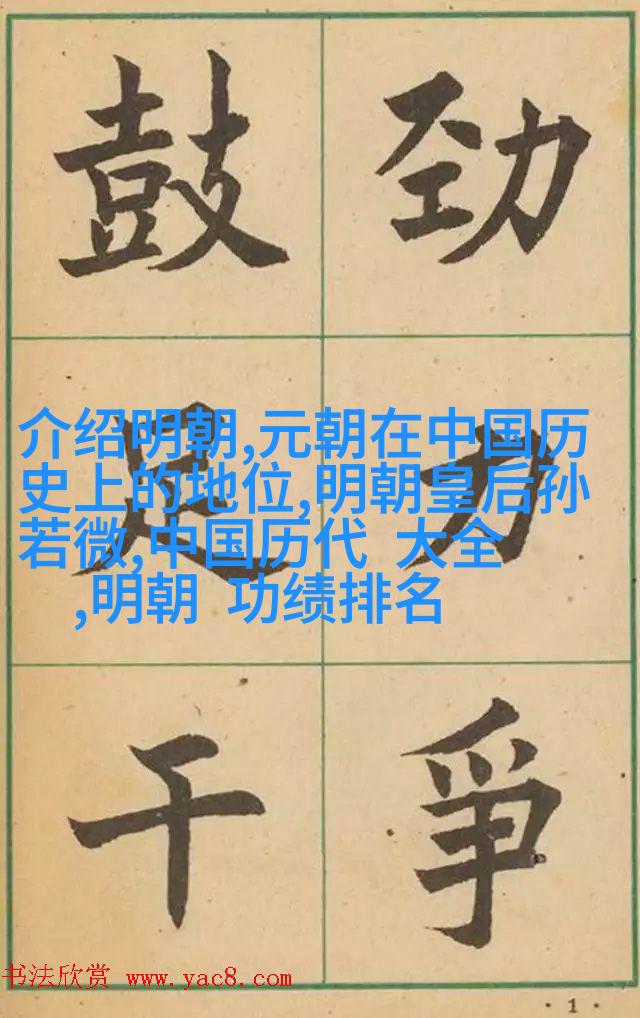 鼓足干
劲力爭
介绍明朝,元朝在中国历
史上的地位,明朝皇后孙
若微,中国历代 大全
,明朝 功绩排名
书法欣赏 www.yac8.com
·1·